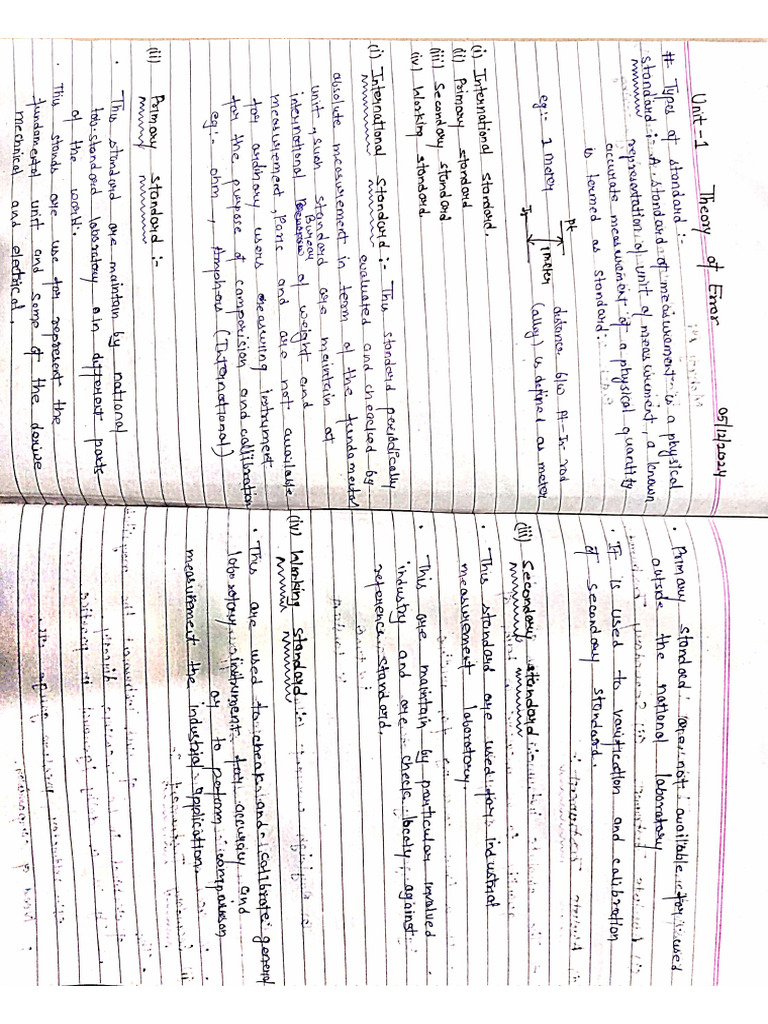 05/12/2024
Unit-1 Theory of Error
# Types of standard :-
standard :- A standard of measurement is a physical
representation of unit of measurement, a known
accurate measurement of a physical quantity
is termed as standard:-
eg:- 1 meter
Pt
1 meter
Ir
distance b/w Pt-Ir rod
(alloy) is defined as meter
(i) International standard.
(ii) Primary standard
(iii) Secondary standard
(iv) Working standard.
(i) International Standard :- This standard periodically
evaluated and checked by
absolute measurement in term of the fundamental
unit, such standard are maintain at
international Bureau of weight and
measurement, Paric and are not available
for ordinary users measuring instrument
for the purpose of comparision and callibration
eg:- ohm, Amphere (International)
(ii) Primary standard :-
• This standard are maintain by national
standard laboratory in different parts
of the world.
• This stands are use for represent the
fundamental unit and some of the derive
mechnical and electrical.
• Primary standard are not available for used
outside the national laboratory
• It is used to varification and calibration
of secondary standard.
(iii) Secondary standard :-
• This standard are used for industrial
measurement laboratory.
• This are maintain by particular involved
industry and are check localy against
reference standard.
(iv) Working standard
• This are used to check and calibrate general
laboratory instrument for accuracy and
or to perform comparision
measurement the industrial application.